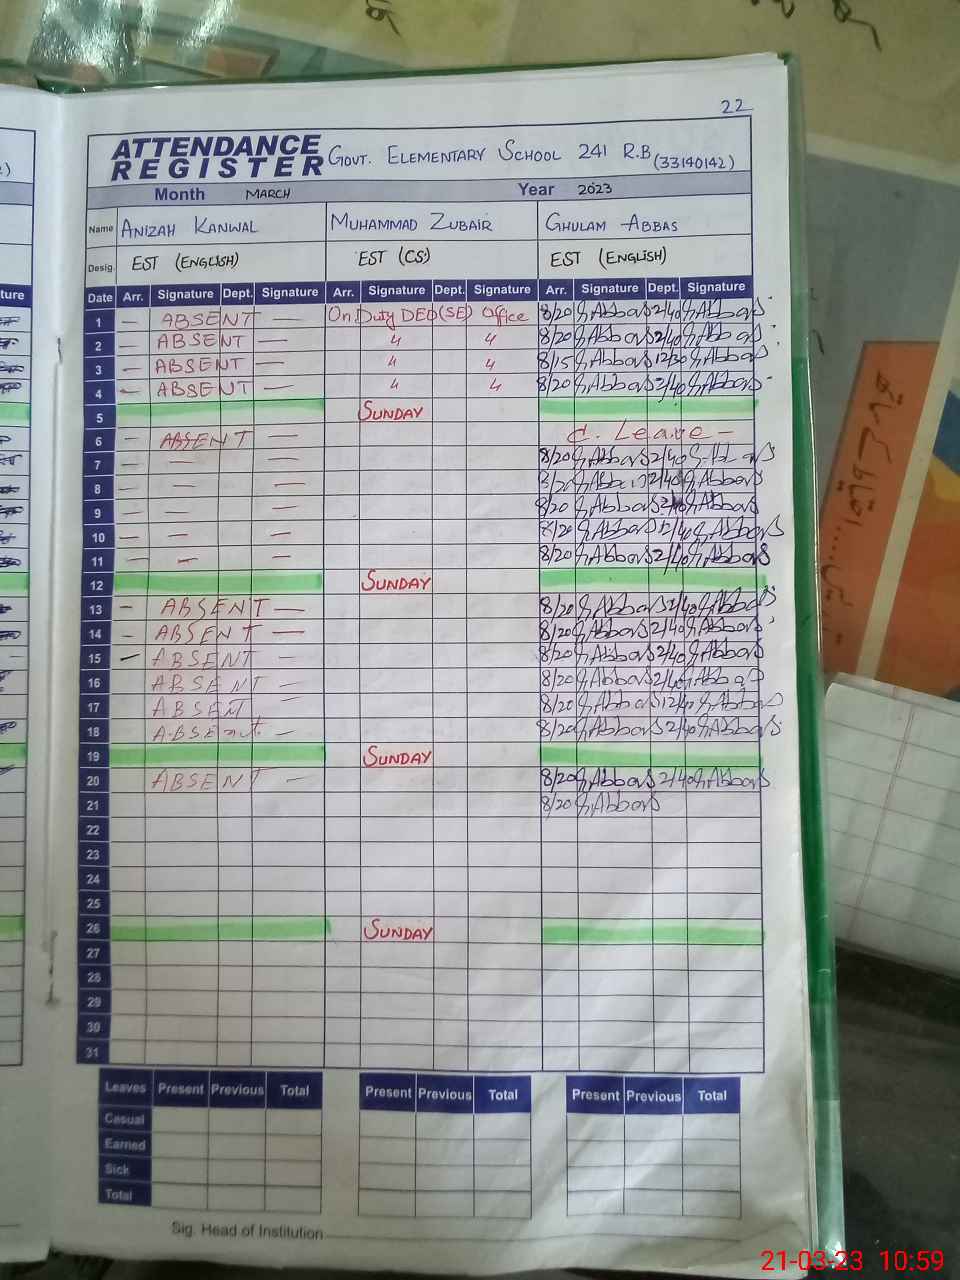 22
ATTENDANCE REGISTER GOVT. ELEMENTARY SCHOOL 241 R.B (33140142)
Month MARCH Year 2023
Name ANIZAH KANWAL MUHAMMAD ZUBAIR GHULAM ABBAS
Desig. EST (ENGLISH) EST (CS) EST (ENGLISH)
Date Arr. Signature Dept. Signature Arr. Signature Dept. Signature Arr. Signature Dept. Signature
1 — ABSENT — On Duty DEO(SE) Office 8/20 G,Abbas 2/40 G,Abbas
2 — ABSENT — " " 8/20 G,Abbas 2/40 G,Abbas
3 — ABSENT — " " 8/15 G,Abbas 12/30 G,Abbas
4 — ABSENT — " " 8/20 G,Abbas 2/40 G,Abbas
5 SUNDAY
6 — ABSENT — C. Leave —
7 — — — 8/20 G,Abbas 2/40 G,Abbas
8 — — — 8/20 G,Abbas 2/40 G,Abbas
9 — — — 8/20 G,Abbas 2/40 G,Abbas
10 — — — 8/20 G,Abbas 12/40 G,Abbas
11 — — — 8/20 G,Abbas 2/40 G,Abbas
12 SUNDAY
13 — ABSENT — 8/20 G,Abbas 2/40 G,Abbas
14 — ABSENT — 8/20 G,Abbas 2/40 G,Abbas
15 — ABSENT 8/20 G,Abbas 2/40 G,Abbas
16 ABSENT — 8/20 G,Abbas 2/40 G,Abbas
17 ABSENT — 8/20 G,Abbas 12/40 G,Abbas
18 ABSEnt — 8/20 G,Abbas 2/40 G,Abbas
19 SUNDAY
20 ABSENT — 8/20 G,Abbas 2/40 G,Abbas
21 8/20 G,Abbas
22
23
24
25
26 SUNDAY
27
28
29
30
31
Leaves Present Previous Total Present Previous Total Present Previous Total
Casual
Earned
Sick
Total
Sig. Head of Institution
21-03-23 10:59